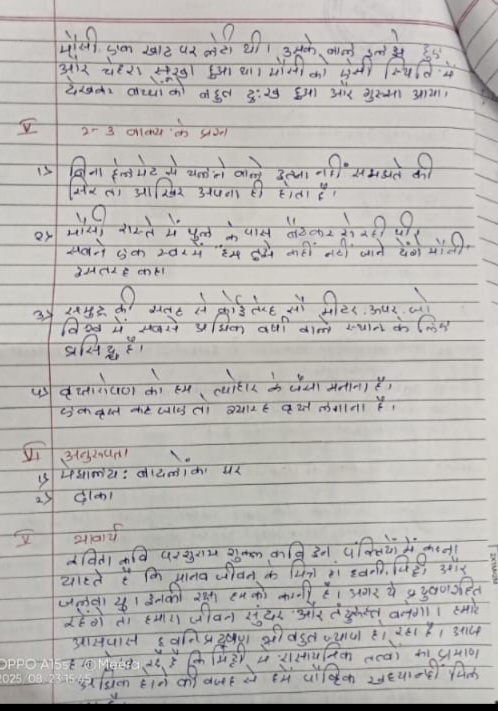 मौसी एक खाट पर लेटी थी। उसके बाल उलझे हुए
और चेहरा सूखा हुआ था। मौसी को ऐसी स्थिति में
देखकर बच्चों को बहुत दुःख हुआ और गुस्सा आया।
V 2-3 वाक्य के प्रश्न
1) बिना हेलमेट से चलाने वाले इतना नहीं समझते की
सिर तो आखिर अपना ही होता है।
2) मौसी रास्ते में पुल के पास बैठकर रो रही थी
सबने एक स्वर में हम तुझे कहीं नहीं जाने देंगे मौसी
इसतरह कहा
3) समुद्र की सतह से कोई तेरह सौ मीटर ऊपर जो
विश्व में सबसे अधिक वर्षा वाले स्थान के लिए
प्रसिद्ध है।
4) वृक्षारोपण को हम त्योहार के जैसा मनाना है।
एक वृक्ष कट जाए तो ग्यारह वृक्ष लगाना है।
VI अनुरूपता
1) मेघालय: बादलों का घर
2) ढाका
V भावार्थ
कवि परशुराम शुक्ल कवि इन पंक्तियों में कहना
चाहते है कि मानव जीवन के मित्र है। ध्वनी, मिट्टी और
जलवायु। इनकी रक्षा हमको करनी है। अगर ये प्रदुषणरहित
रहेंगे तो हमारा जीवन सुंदर और तंदुरुस्त बनेगा। हमारे
आसपास ध्वनि प्रदुषण भी बहुत ज्यादा हो रहा है। आज
है कि मिट्टी में रासायनिक तत्वों का प्रमाण
अधिक होने की वजह से हमें पौष्टिक नहीं मिल
OPPO A15s Meera
2025.08.23 15:45